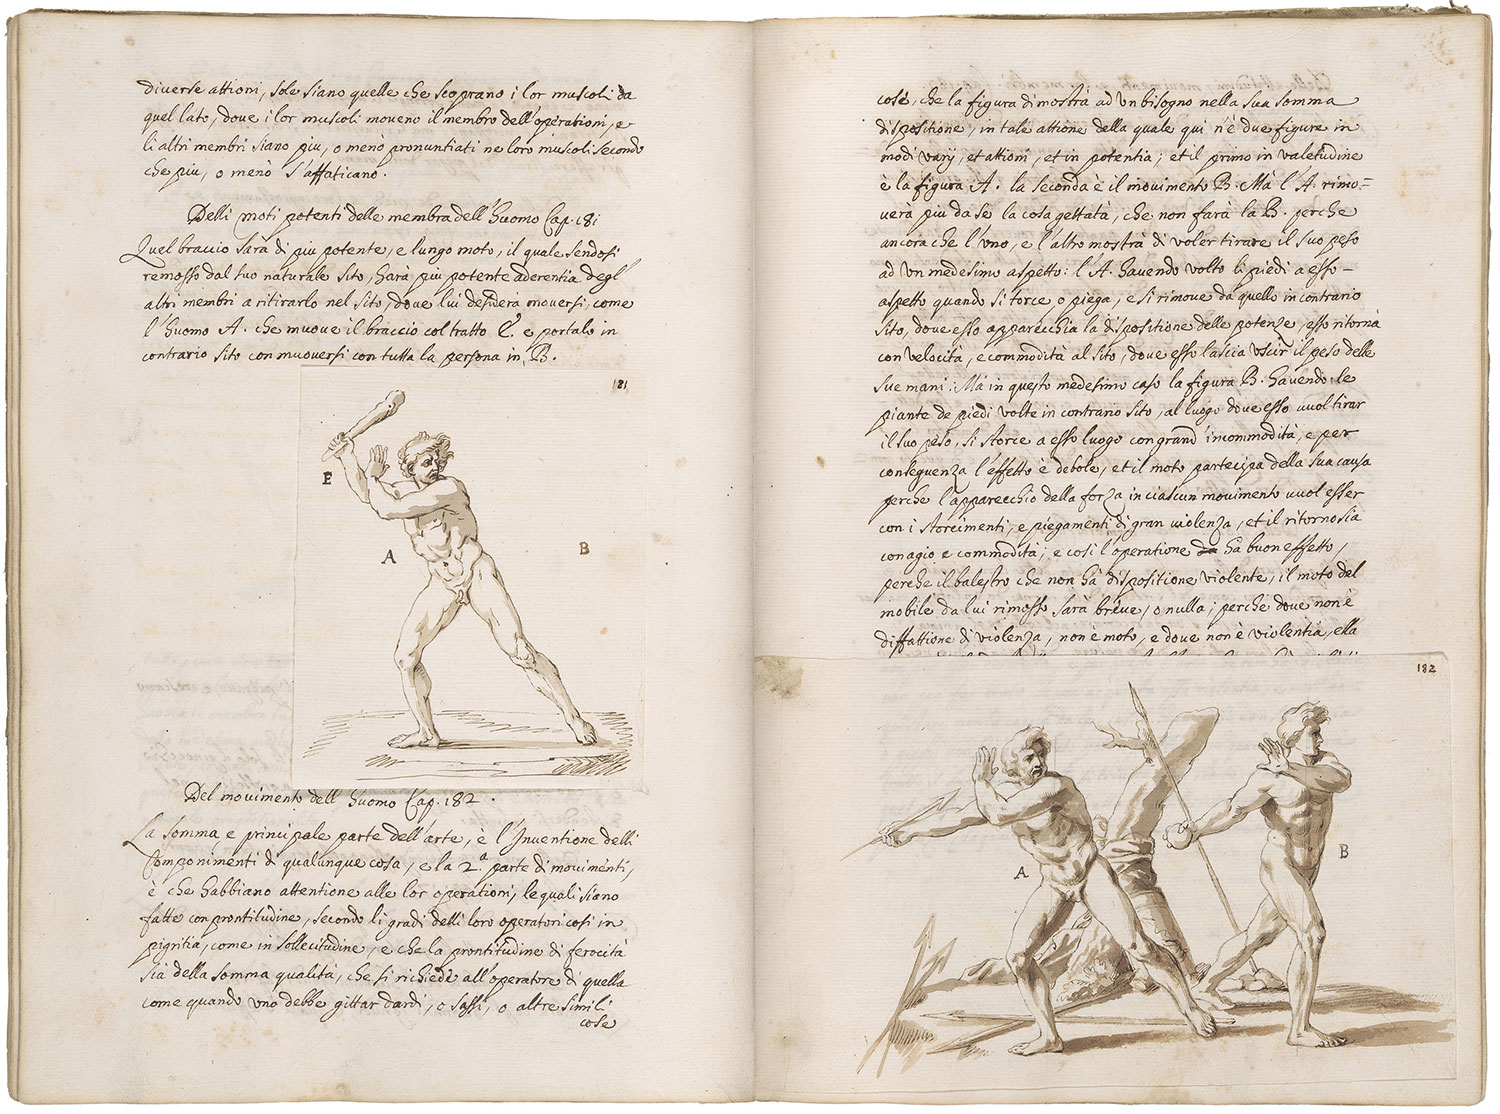 diverse attioni, sole siano quelle che scoprano i lor muscoli da
quel lato, dove i lor muscoli moveno il membro dell'operationi, e
li altri membri siano piu, o menò pronuntiati ne loro muscoli secondo
che piu, o menò s'affaticano.
Delli moti potenti delle membra dell'Huomo Cap. 181
Quel braccio sarà di piu potente, e lungo moto, il quale sendosi
remosso dal suo naturale sito, harà più potente aderentia degl'
altri membri a ritirarlo nel sito, dove lui desidera moversi, come
l'huomo A. che muove il braccio col tratto E. e portalo in
contrario sito con muoversi con tutta la persona in B.
181
E
A
B
Del movimento dell'huomo Cap. 182.
La somma e principale parte dell'arte, è l'Inventione delli
Componimenti di qualunque cosa, e la 2ª parte di movimenti,
è che habbiano attentione alle lor operationi, le quali siano
fatte con prontitudine, secondo li gradi delli loro operatori così in
pigritia, come in sollecitudine, e che la prontitudine di ferocità
sia della somma qualità, che si richiede all'operatore di quella
come quando uno debbe gittar dardi, o sassi, o altre simili
cose
cose, che la figura dimostrà ad un bisogno nella sua somma
dispositione, in tale attione della quale qui n'è due figure in
modi varij, et attioni, et in potentia; et il primo in valetudine
è la figura A. la seconda è il movimento B. Mà l'A. rimo=
verà piu da se la cosa gettatà, che non farà la B. perche
ancora che l'uno, e l'altro mostrà di voler tirare il suo peso
ad un medesimo aspetto: l'A. havendo volto li piedi a esso
aspetto quando si torce o piega, e si rimove da quello in contrario
sito, dove esso apparecchia la dispositione delle potenze, esso ritornà
con velocità, e commodità al sito, dove esso lascia uscir il peso delle
sue mani: Mà in questo medesimo caso la figura B. havendo le
piante de piedi volte in contrario sito, al luogo dove esso vuol tirar
il suo peso, si storce a esso luogo con grand'incommodità, e per
conseguenza l'effetto è debole, et il moto partecipa della sua causa
perche l'apparecchio della forza in ciascun movimento vuol esser
con istorcimenti, e piegamenti di gran violenza, et il ritorno sia
con agio e commodità; e così l'operatione ha buon effetto,
perche il balestro che non hà dispositione violente, il moto del
mobile da lui rimosso sarà brève, o nulla; perche dove non è
diffattione di violenza, non è moto, e dove non è violentia, ella
182
A
B